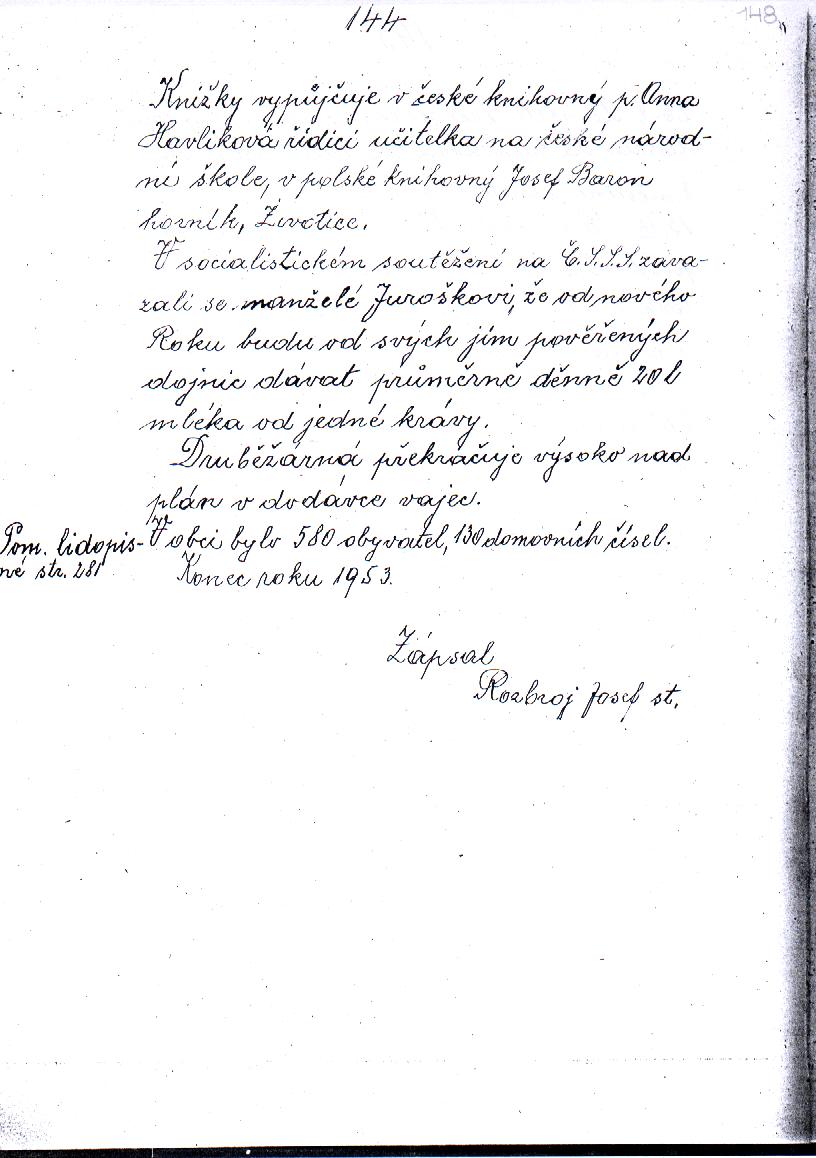 144
148
Knížky vypůjčuje v české knihovný p. Anna
Havliková řídící učitelka na české národ-
ní škole, v polské knihovný Josef Baron
horník, Životice.
V socialistickém soutěžení na Č.S.S.S. zava-
zali se manželé Juroškovi, že od nového
Roku budu od svých jím pověřených
dojnic dávat průměrně děnně 20 l
mléka od jedné krávy.
Druběžárná překračuje výsoko nad
plán v dodávce vajec.
V obci bylo 580 obyvatel, 130 domovních čísel.
Pom. lidopis-
né str. 281
Konec roku 1953.
Zápsal
Rozbroj Josef st.